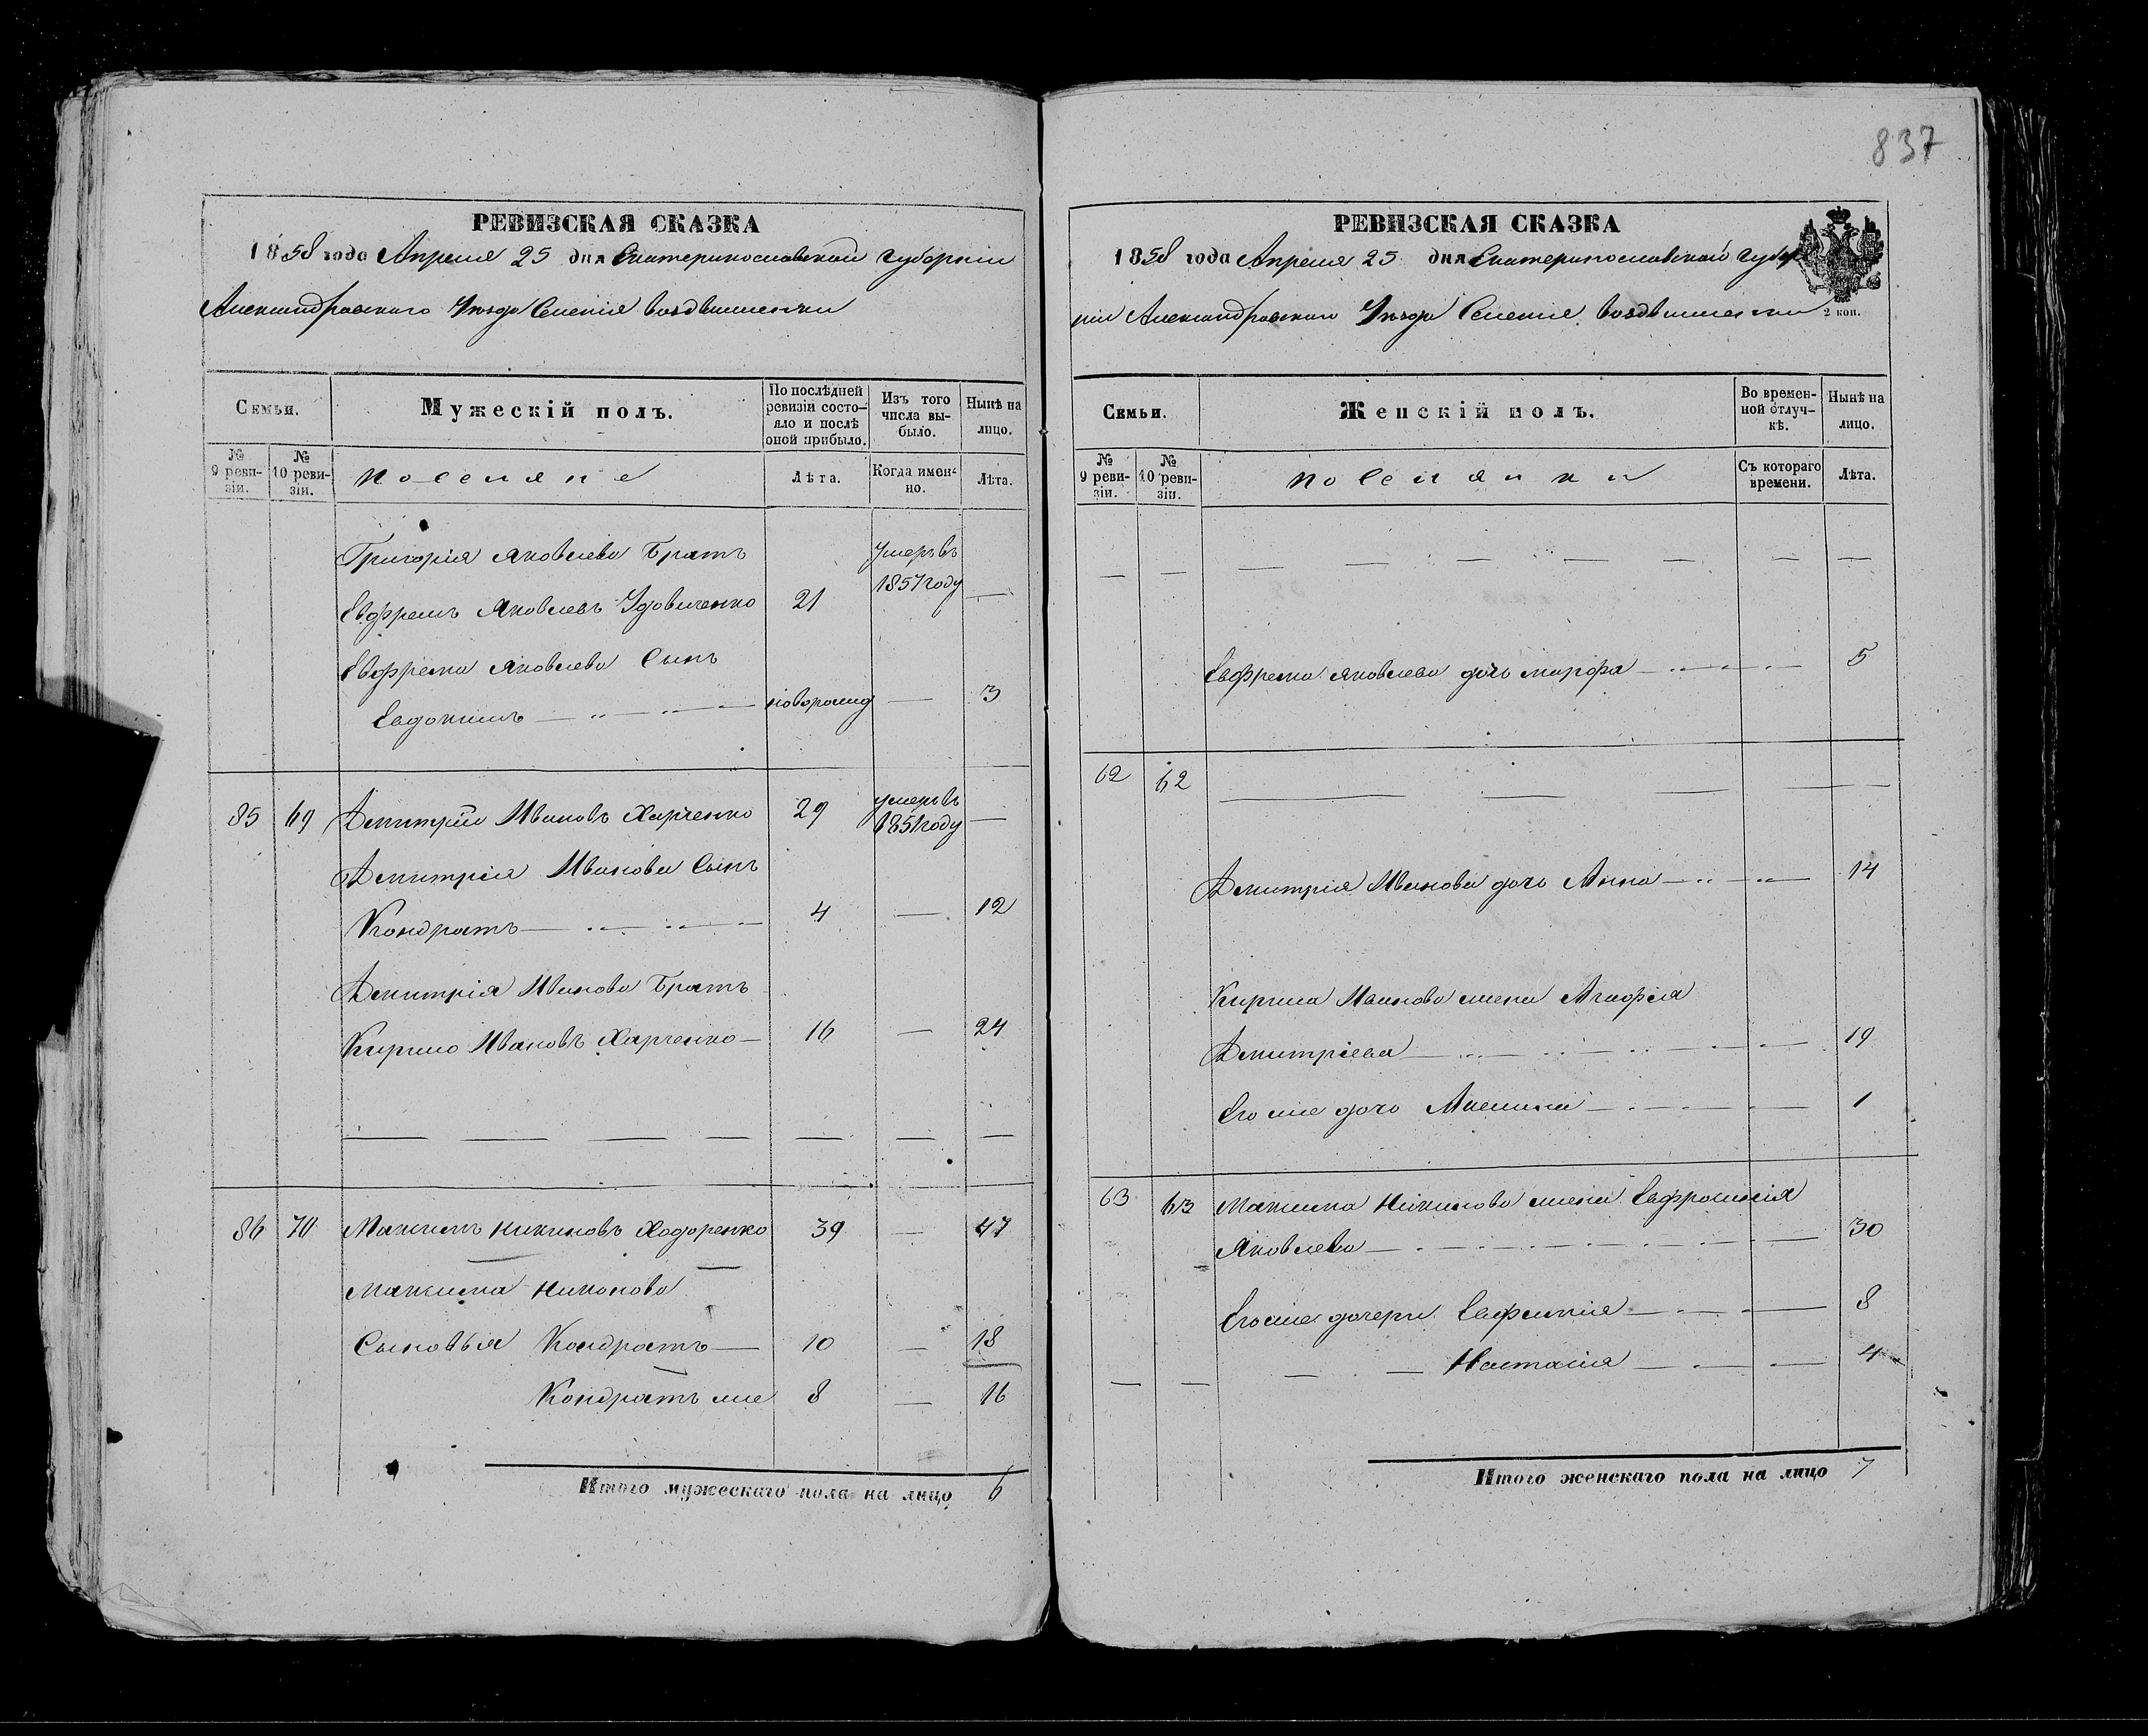 837
РЕВИЗСКАЯ СКАЗКА
1858 года Апреля 25 дня Екатеринославской Губерніи
Александровскаго Уѣзда Селенія Воздвиженки
Семьи.
Мужескій полъ.
По послѣдней ревизіи состо-яло и послѣ оной прибыло.
Изъ того числа вы-было.
Нынѣ на лицо.
№ 9 реви-зіи.
№ 10 реви-зіи.
Поселяне
Лѣта.
Когда имен-но.
Лѣта.
Григорія Яковлева Братъ
Евфремъ Яковлевъ Удовиченко 21 Умеръ въ 1857 году —
Евфрема Яковлева Сынъ
Евдокимъ новорожд — 3
85 69 Дмитрій Ивановъ Харченко 29 умеръ въ 1851 году —
Дмитрія Иванова Сынъ
Кондратъ 4 — 12
Дмитрія Иванова Братъ
Кирило Ивановъ Харченко 16 — 24
86 70 Максимъ Никоновъ Ходоренко 39 — 47
Максима Никонова
Сыновья Кондратъ — 10 — 18
Кондратъ же 8 — 16
Итого мужескаго пола на лицо 6
РЕВИЗСКАЯ СКАЗКА
1858 года Апреля 25 дня Екатеринославской Губер
ніи Александровскаго Уѣзда Селенія Воздвиженки
2 коп.
Семьи.
Женскій полъ.
Во времен-ной отлуч-кѣ.
Нынѣ на лицо.
№ 9 реви-зіи.
№ 10 реви-зіи.
Поселянки
Съ котораго времени.
Лѣта.
Евфрема Яковлева дочь Марфа 5
62 62
Дмитрія Иванова дочь Анна 14
Кирила Иванова жена Агафія
Дмитріева 19
Его же дочь 1
63 63 Максима Никонова жена Евфросинія
Яковлева 30
Его же дочери Евфимія 8
Настасія 4
Итого женскаго пола на лицо 7